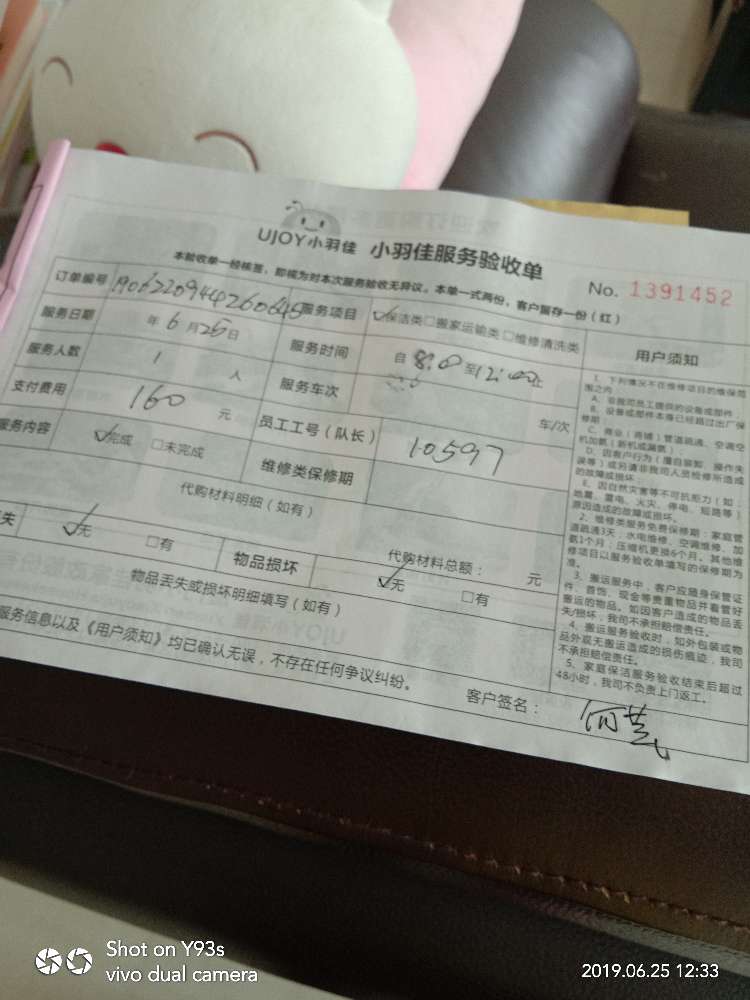 UJOY小羽佳 小羽佳服务验收单
No. 1391452
本验收单一经核签，即视为对本次服务验收无异议。本单一式两份，客户留存一份（红）
订单编号 1906220944260645 服务项目 ✓保洁类 □搬家运输类 □维修清洗类
服务日期 年 6 月 25 日 服务时间 自 8:00 至 12:00 止
服务人数 1 人 服务车次 车/次
支付费用 160 元 员工工号（队长） 10597
服务内容 ✓完成 □未完成 维修类保修期
代购材料明细（如有）
代购材料总额： 元
失 ✓无 □有 物品损坏 ✓无 □有
物品丢失或损坏明细填写（如有）
服务信息以及《用户须知》均已确认无误，不存在任何争议纠纷。
客户签名：
用户须知
1、下列情况不在维修项目的维保范
围之内：
A、非我司员工提供的设备或部件；
B、设备或部件本身已经超过出厂保
修期；
C、商业（商铺）管道疏通、空调空
机加氨（新机或漏氨）；
D、因客户行为（擅自装卸、操作失
误等）或另请非我司人员检修所造成
的故障或损坏；
E、因自然灾害等不可抗能力（如：
地震、雷电、火灾、停电、短路等）
原因造成的故障或损坏。
2、维修类服务免费保修期：家庭管
道疏通3天；水电维修、空调维修、加
氨1个月；压缩机更换6个月。其他维
修项目以服务验收单填写的保修期为
准。
3、搬运服务中，客户应随身保管证
件、首饰、现金等贵重物品并看管好
搬运的物品。如因客户造成的物品丢
失/损坏，我司不承担赔偿责任。
4、搬运服务验收时，如外包装或物
品外观无搬运造成的损伤痕迹，我司
不承担赔偿责任。
5、家庭保洁服务验收结束后超过
48小时，我司不负责上门返工。
Shot on Y93s
vivo dual camera
2019.06.25 12:33